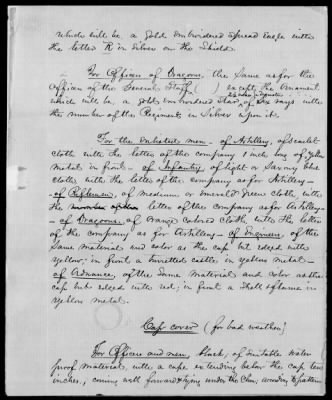 which will be a gold embroidered spread eagle with
the letter R in silver on the shield.
For Officers of Dragoons, the same as for the
Officers of the General Staff ( ) except the ornament
which will be a gold embroidered star, of six rays with
the number of the Regiment in silver upon it.
For the Enlisted men - of Artillery, of scarlet
cloth with the letter of the company 1 inch long of yellow
metal in front. - of Infantry, of light or Saxony blue
cloth with the letter of the company as for Artillery -
- of Riflemen, of medium or emerald green cloth, with
the letter of the company as for Artillery -
- of Dragoons, of orange colored cloth, with the letter
of the company as for Artillery - of Engineers, of the
same material and color as the cap but edged with
yellow; in front a turreted castle in yellow metal -
- of Ordnance, of the same material and color as the
cap but edged with red; in front a shell & flame in
yellow metal.
Cap cover (for bad weather)
For Officers and men, black, of suitable water
proof material, with a cape extending below the cap ten
inches, coming well forward & tying under the chin, according to pattern